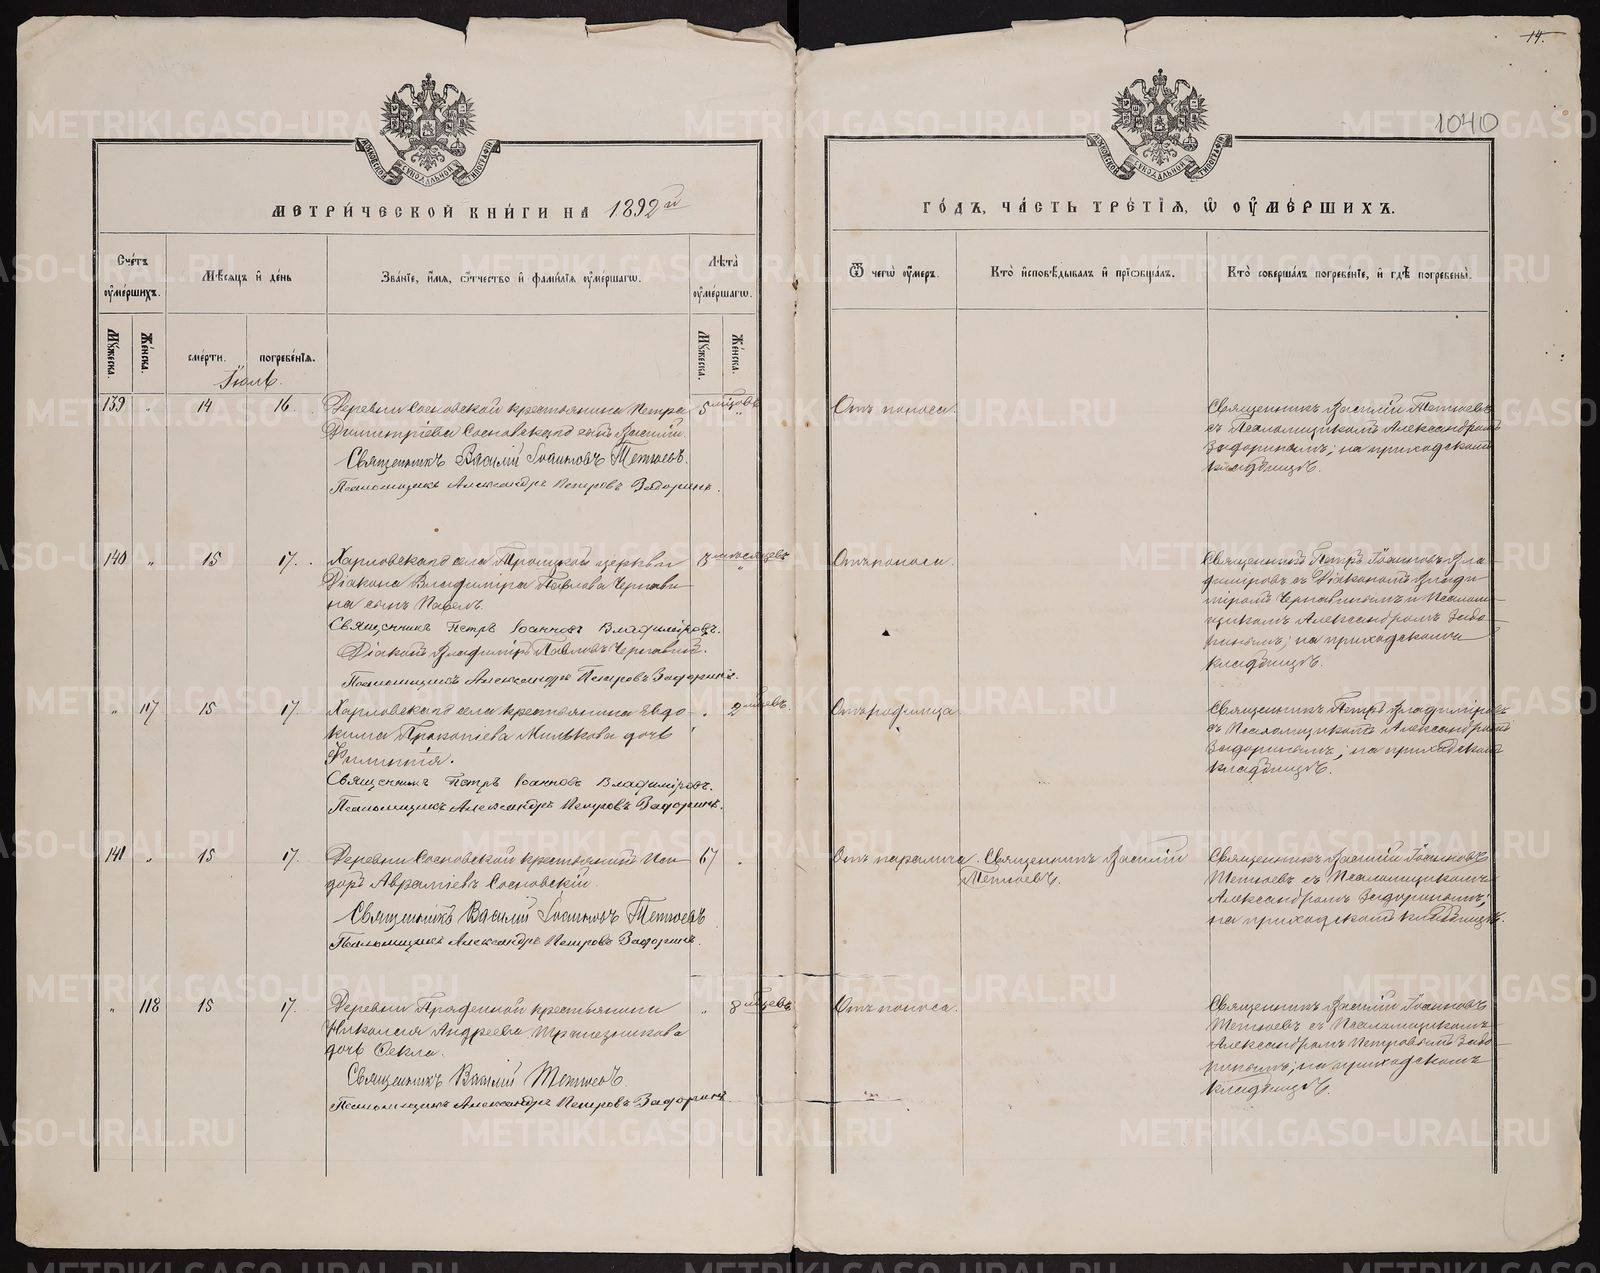 14.
1040
МЕТРИ́ЧЕСКОЙ КНИ́ГИ НА 1892й
ГО́ДЪ, ЧА́СТЬ ТРЕ́ТІЯ, Ѿ ОУ҆МЕ́РШИХЪ.
Счетъ оу҆ме́ршихъ.
Мѣ́сяцъ и҆ де́нь
Зва́ніе, и҆́мя, ѻ҆́тчество и҆ фами́лія оу҆ме́ршагѡ.
Лѣта̀ оу҆ме́ршагѡ.
Ѿ чегѡ̀ оу҆́меръ.
Кто̀ и҆сповѣ́дывалъ и҆ пріѡбща́лъ.
Кто̀ соверша́лъ погребе́ніе, и҆ гдѣ̀ погребены̀.
Мꙋ́жеска. Же́нска.
сме́рти. погребе́нія.
Мꙋ́жеска. Же́нска.
Іюль.
139 " 14 16. Деревни Сосновской крестьянина Петра 5 мѣсяцовъ
Димитріева Сосновскаго сынъ Василій.
Священникъ Василій Іоанновъ Тетюевъ.
Псаломщикъ Александръ Петровъ Задоринъ.
Отъ поноса.
Священникъ Василій Тетюевъ
съ Псаломщикомъ Александромъ
Задоринымъ; на приходскомъ
кладбищѣ.
140 " 15 17. Харловскаго села Троицкой церкви мѣсяцевъ
Діакона Владиміра Павлова Чернави-
на сынъ Павелъ.
Священникъ Петръ Іоанновъ Владиміровъ.
Діаконъ Владиміръ Павловъ Чернавинъ.
Псаломщикъ Александръ Петровъ Задоринъ.
Отъ поноса.
Священникъ Петръ Іоанновъ Вла-
диміровъ съ Діакономъ Влади-
міромъ Чернавинымъ и Псалом-
щикомъ Александромъ Задо-
ринымъ; на приходскомъ
кладбищѣ.
" 117 15 17. Харловскаго села крестьянина Евдо- " 2 мѣсяцевъ.
кима Прокопіева Милькова дочь
Священникъ Петръ Іоанновъ Владиміровъ.
Псаломщикъ Александръ Петровъ Задоринъ.
Отъ родимца
Священникъ Петръ Владиміровъ
съ Псаломщикомъ Александромъ
Задоринымъ; на приходскомъ
кладбищѣ.
141 " 15 17. Деревни Сосновской крестьянинъ Иси- 67 "
доръ Авраміевъ Сосновскій.
Священникъ Василій Іоанновъ Тетюевъ
Псаломщикъ Александръ Петровъ Задоринъ.
Отъ паралича. Священникъ Василій
Тетюевъ.
Священникъ Василій Іоанновъ
Тетюевъ съ Псаломщикомъ
Александромъ Задоринымъ;
на приходскомъ кладбищѣ.
" 118 15 17. Деревни крестьянина " 8 мѣсяцевъ
Николая Андреева Трапезникова
дочь Ѳекла.
Священникъ Василій Тетюевъ
Псаломщикъ Александръ Петровъ Задоринъ.
Отъ поноса.
Священникъ Василій Іоанновъ
Тетюевъ съ Псаломщикомъ
Александромъ Петровымъ Задо-
ринымъ; на приходскомъ
кладбищѣ.
METRIKI.GASO-URAL.RU